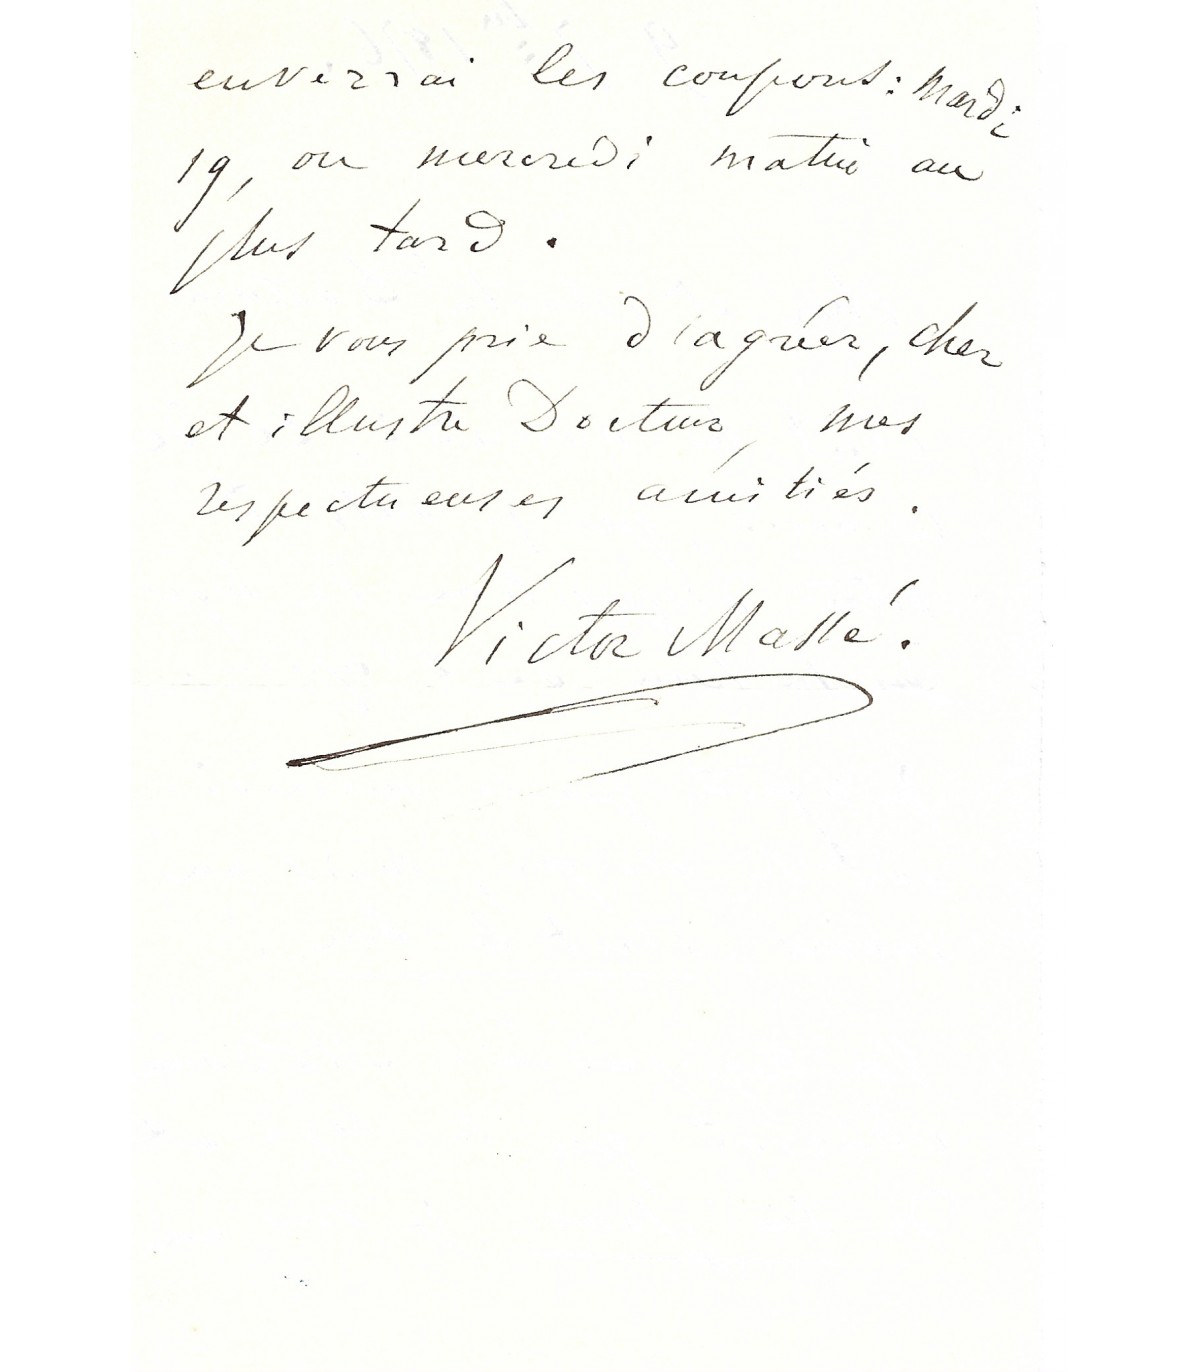 enverrai les coupons : mardi
19, ou mercredi matin au
plus tard.
Je vous prie d'agréer, cher
et illustre Docteur, mes
respectueuses amitiés.
Victor Massé.